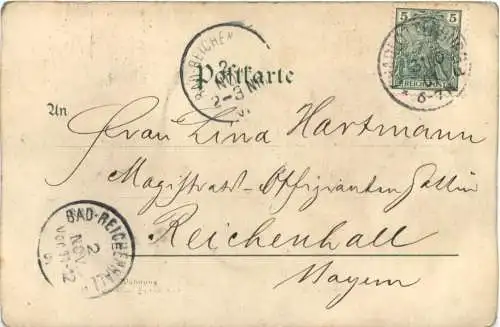 Postkarte
5
5
REICHSPOST
BAD-REICHEN
2
NOV
2-3 N
An
Frau Lina Hartmann
Magistrats-Offizianten Gattin
Reichenhall
Bayern
BAD-REICHENHALL
2
NOV
VOR 11-12
Wohnung